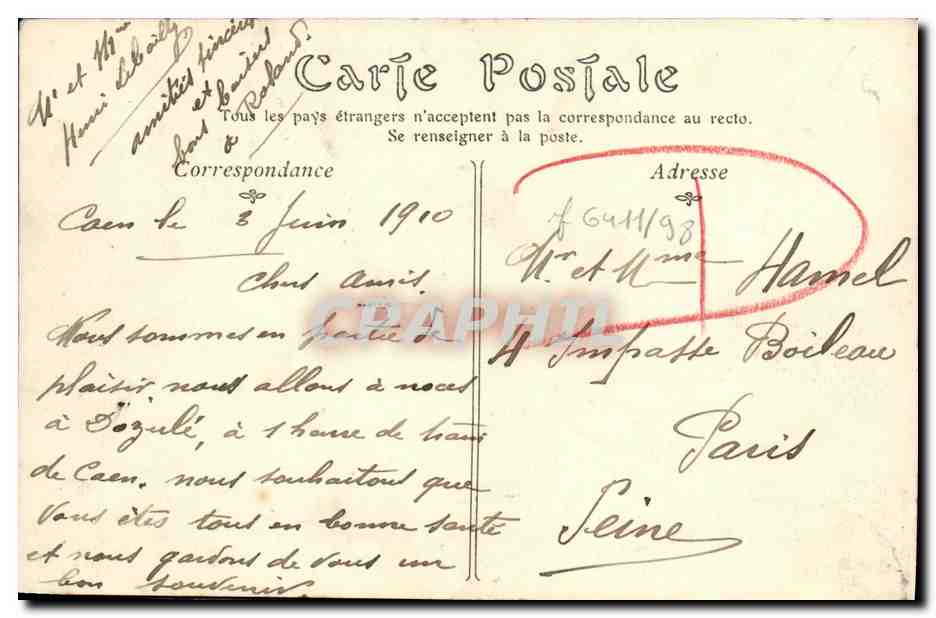 Mr et Mme
Henri Lebailly
amitiés sincères
et
bons baisers
à Roland.
Carte Postale
Tous les pays étrangers n'acceptent pas la correspondance au recto.
Se renseigner à la poste.
Correspondance
Caen le 3 Juin 1910
Chers Amis.
Nous sommes en partie de
plaisir, nous allons à noces
à Dozulé, à 1 heure de train
de Caen. nous souhaitons que
vous êtes tous en bonne santé
et nous gardons de vous un
bon souvenir.
Adresse
D
f 6411/98
Mr et Mme Hamel
4 Impasse Boileau
Paris
Seine
CPAPHIL